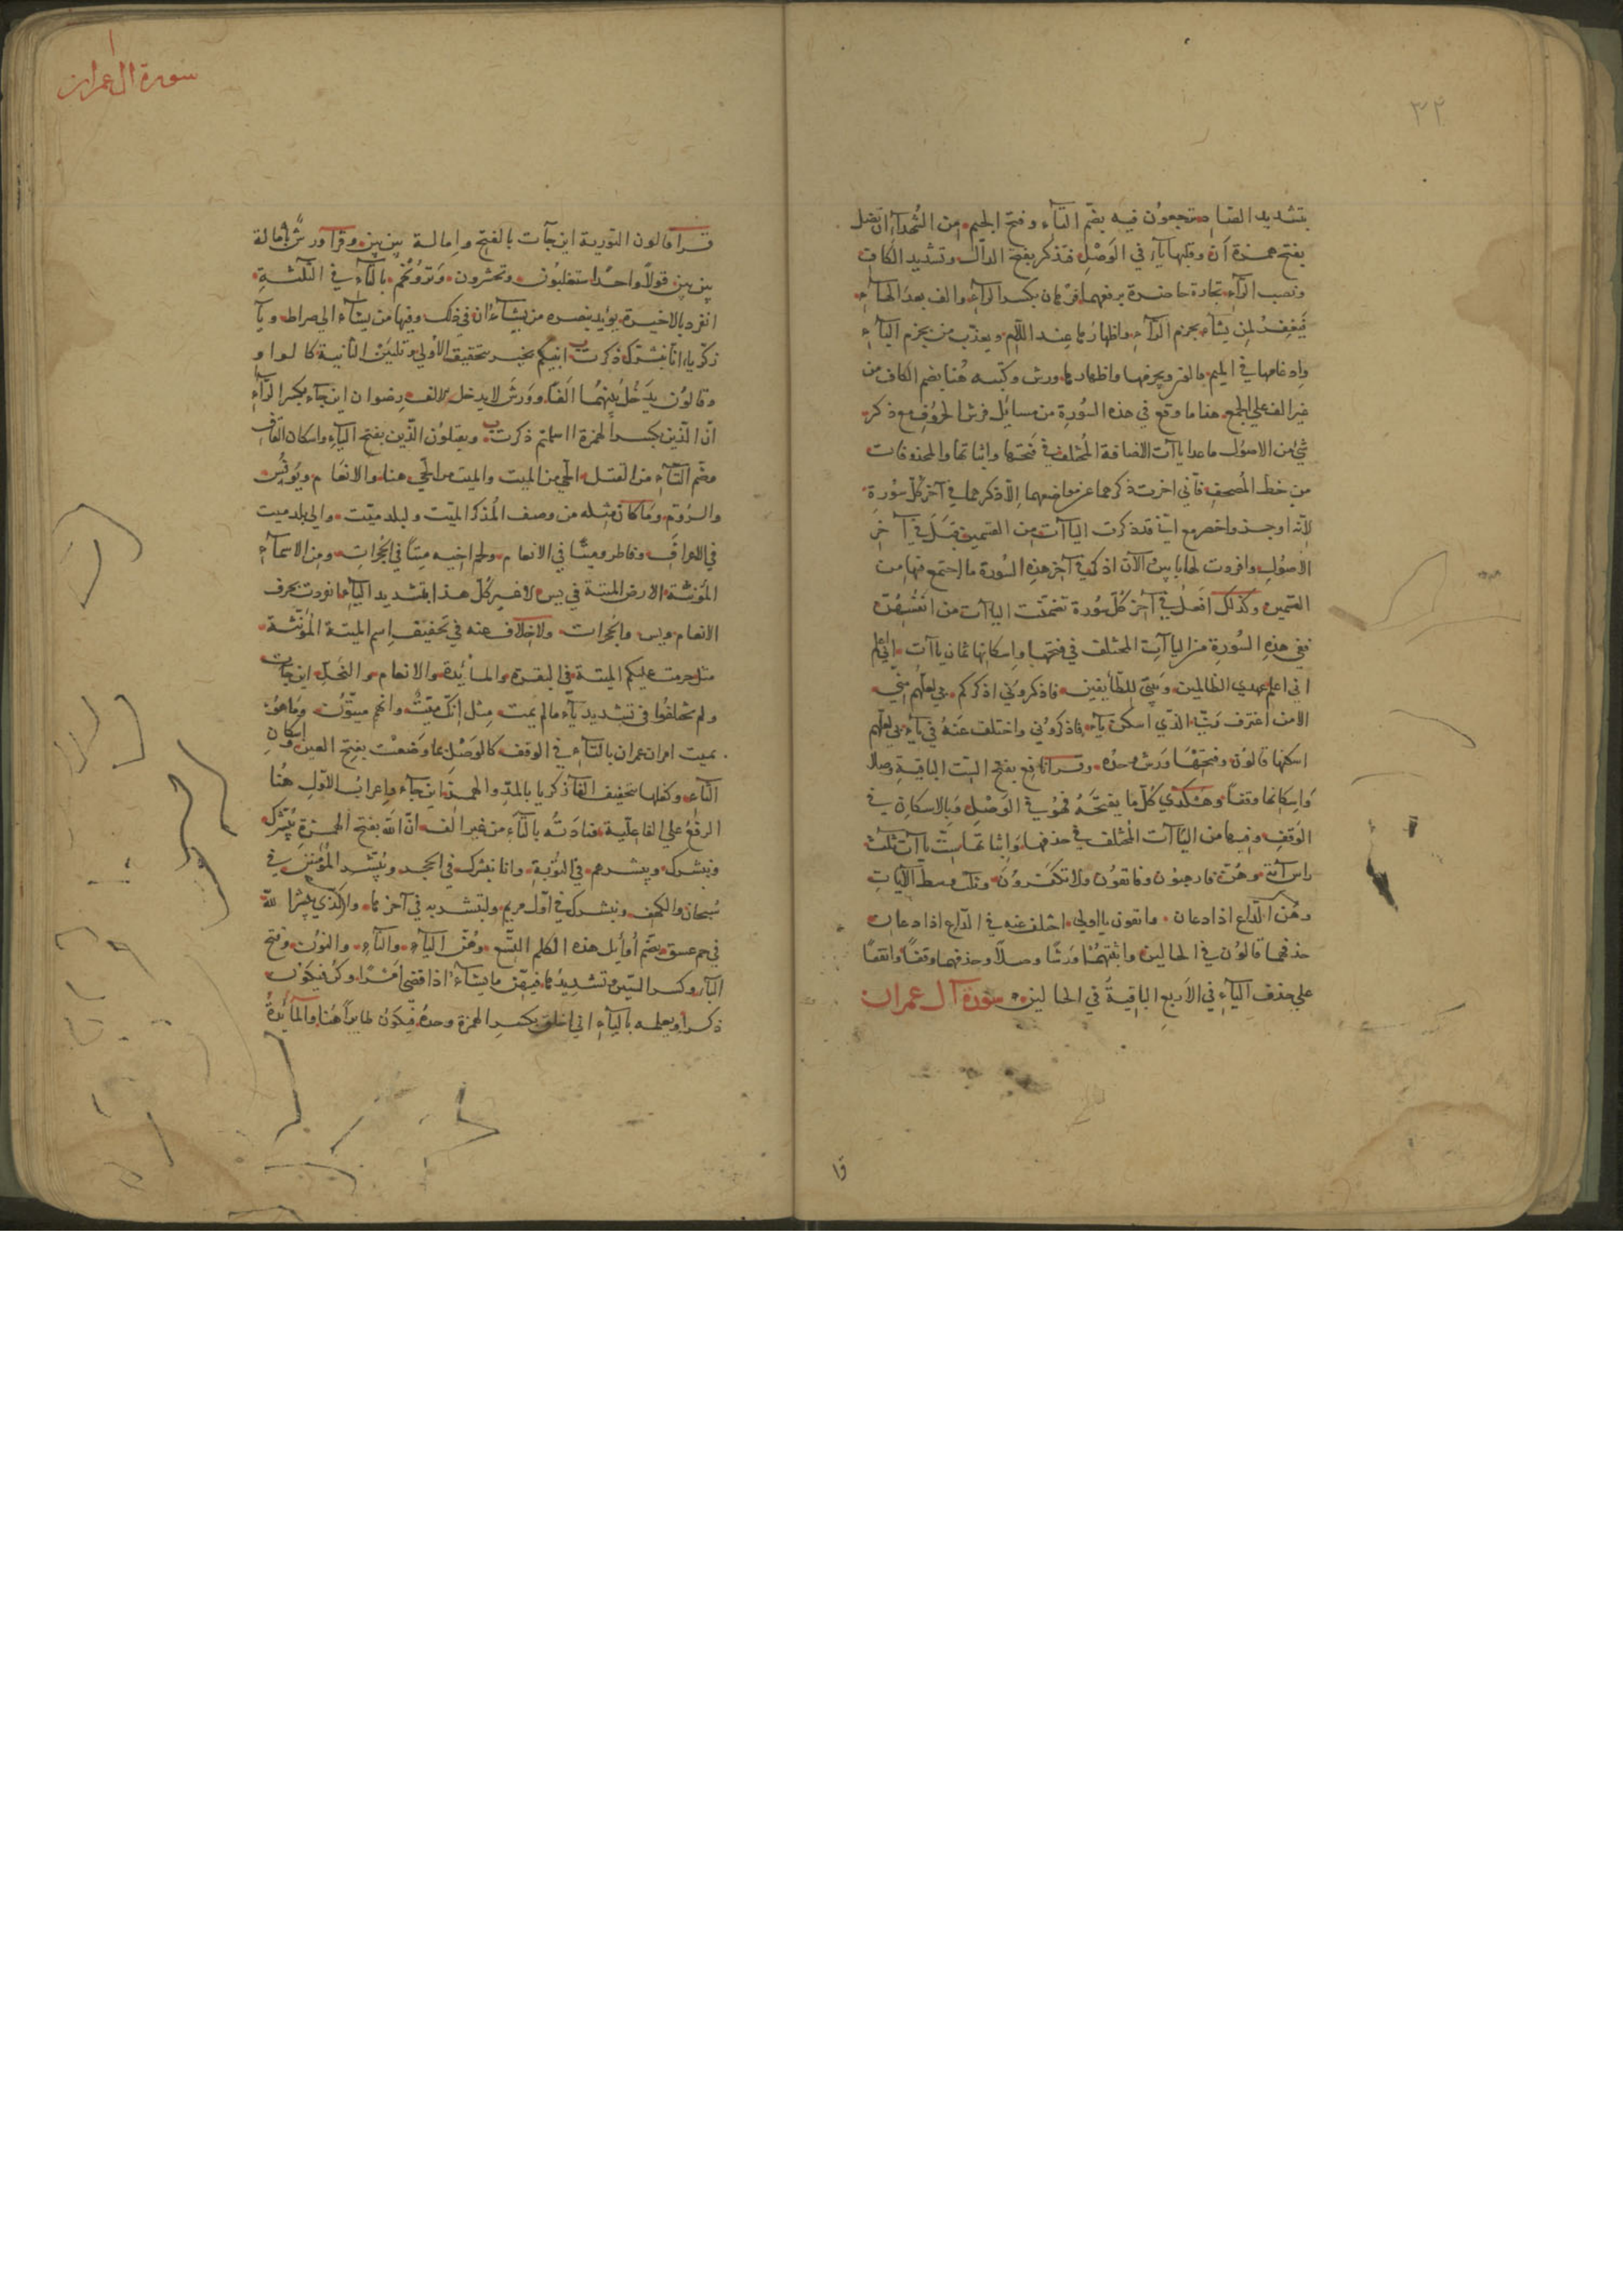 ٣٢
بتشديد الصاد ترجعون فيه بضم التاء وفتح الجيم من الشهداء ان تضل
بفتح همزة ان وقلبها ياء في الوصل فتذكر بفتح الذال وتشديد الكاف
ونصب الراء تجارة حاضرة برفعهما فرهان بكسر الراء والف بعد الهاء
فيغفر لمن يشاء بجزم الراء واظهارها عند اللام ويعذب من بجزم الباء
وادغامها في الميم قالون ويجزمها واظهارها ورش وكتبه هنا بضم الكاف من
غير الف على الجمع هنا ما وقع في هذه السورة من مسائل فرش الحروف مع ذكر
شيء من الاصول ماعدا ياآت الاضافة المختلف في فتحها واثباتها والمحذوفات
من خط المصحف فاني اخرت ذكرهما عن مواضعهما الا ذكرهما في آخر كل سورة
لانه اوجز واخصر مع اني قد ذكرت الياآت من القسمين قبل في آخر
الاصول وافردت لها بابين الآن اذكر في آخر هذه السورة ما اجتمع فيها من
القسمين وكذلك افعل في آخر كل سورة تضمنت الياآت من
ففي هذه السورة من الياآت المختلف في فتحها واسكانها ثمان ياآت اني اعلم
اني اعلم عهدي الظالمين وبيتي للطائفين فاذكروني اذكركم بي لعلهم مني
الا من اغترف ربي الذي اسكن ياء فاذكروني واختلف عنه في ياء بي لعلهم
اسكنها قالون وفتحها ورش وحده وقرا نافع بفتح الست الباقية وصلا
واسكانها وقفا وهكذي كل ما يفتحه فهو في الوصل وبالاسكان في
الوقف وفيها من الياآت المختلف في حذفها واثباتها ست ياآت ثلث
راس آية وهن فارهبون وفاتقون ولا تكفرون وثلث وسط الآيات
وهن الداع اذا دعان واتقون يا اولي اختلف عنه في الداع اذا دعان
حذفهما قالون في الحالين واثبتهما ورشا وصلا وحذفهما وقفا واتفقا
على حذف الياء في الاربع الباقية في الحالين سورة آل عمران
قا
سورة ال عمران
قرا قالون التورية اين جآت بالفتح وامالة بين بين وقرا ورش بامالة
بين بين قولا واحدا ستغلبون وتحشرون وترونهم بالتاء في الثلثة
انفرد بالاخيرة يؤيد بنصره من يشاء ان في ذلك وفيها من يشاء الى صراط ويا
زكريا انا نبشرك ذكرت انبيكم بخير بتحقيق الاولى وتليين الثانية كالواو
وقالون يدخل بينهما الفا وورش لا يدخل الالف رضوان اين جاء بكسر الراء
ان الذين بكسر الهمزة ااسلمتم ذكرت ويقتلون الذين بفتح الياء واسكان القاف
وضم التاء من القتل الحي من الميت والميت من الحي هنا والانعام ويونس
والروم وما كان مثله من وصف المذكر الميت ولبلد ميت والى بلد ميت
في الاعراف وفاطر وميتا في الانعام ولحم اخيه ميتا في الحجرات ومن الاسماء
المؤنثة الارض الميتة في يس لا غير كل هذا بتشديد الياء انفردت بحرف
الانعام ويس والحجرات ولا خلاف عنه في تخفيف اسم الميتة المؤنثة
مثل حرمت عليكم الميتة في البقرة والمائدة والانعام والنحل اين جآت
ولم يختلفوا في تشديد ياء ما لم يمت مثل انك ميت وانهم ميتون وما هو
بميت امران عمران بالتاء في الوقف كالوصل بما وضعت بفتح العين واسكان
التاء وكفلها بتخفيف الفاء زكريا بالمد والهمز اين جاء واعراب الاول هنا
الرفع على الفاعلية فنادته بالتاء من غير الف ان الله بفتح الهمزة يبشرك
ونبشرك ويبشرهم في التوبة وانا نبشرك في الحجر ويبشر المؤمنين في
سبحان والكهف ونبشرك في اول مريم ولتبشر به في آخرها والذي يبشر الله
في حم عسق بضم اوايل هذه الكلم التسع وهن الياء والتاء والنون وفتح
الباء وكسر الشين وتشديدها فيهن ما يشاء اذا قضى امرا وكن فيكون
ذكرا ويعلمه بالياء اني اخلق بكسر الهمزة وحده فيكون طايرا هنا والمائدة